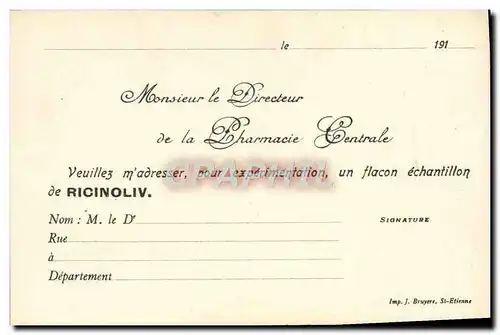 le 191
Monsieur le Directeur
de la Pharmacie Centrale
Veuillez m'adresser, pour expérimentation, un flacon échantillon
de RICINOLIV.
Nom : M. le Dr SIGNATURE
Rue
à
Département
Imp. J. Bruyere, St-Etienne